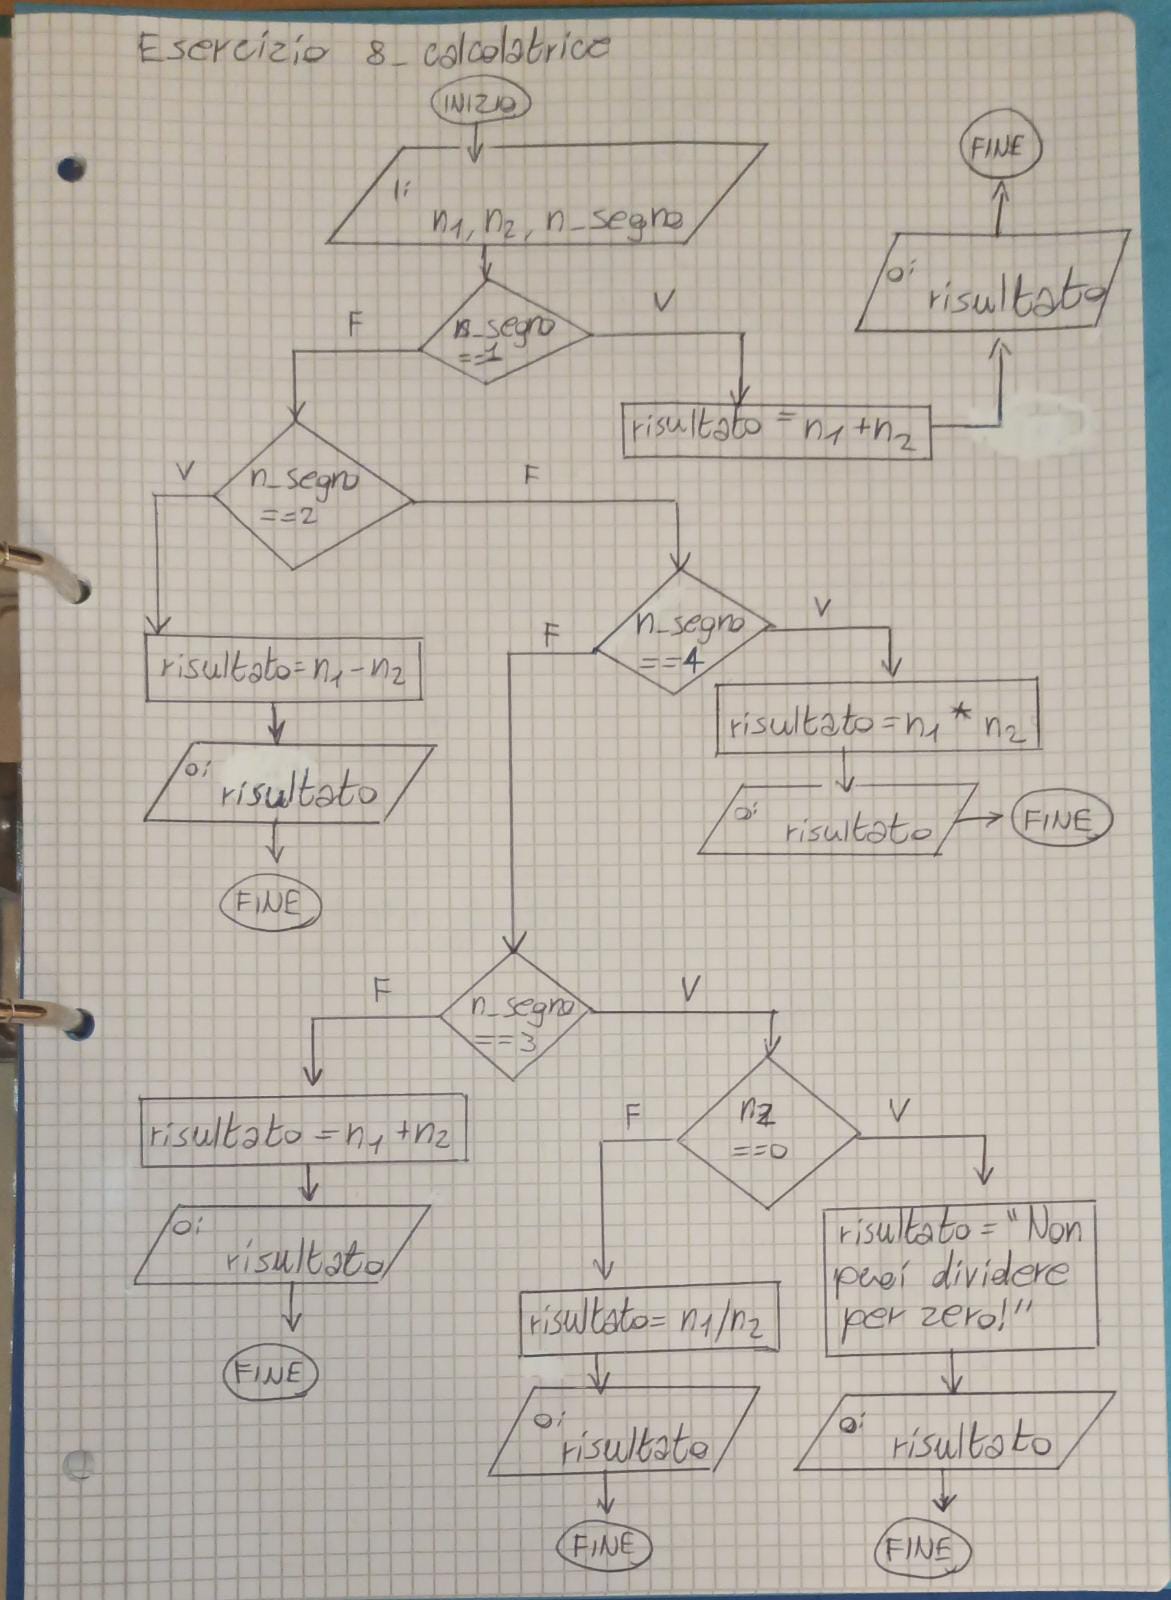 Esercizio 8_ calcolatrice
INIZIO
I:
n1, n2, n_segno
n_segno
==1
F
V
risultato = n1+n2
O:
risultato
FINE
n_segno
==2
V
F
risultato=n1-n2
O:
risultato
FINE
n_segno
==4
F
V
risultato=n1 * n2
O:
risultato
FINE
n_segno
==3
F
V
risultato = n1 +n2
O:
risultato
FINE
n2
==0
F
V
risultato= n1/n2
O:
risultato
FINE
risultato = "Non
puoi dividere
per zero!"
O:
risultato
FINE